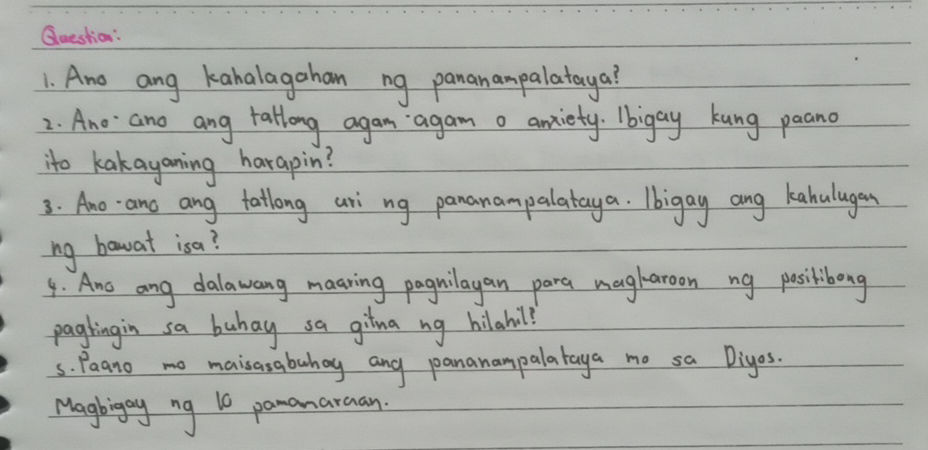 Question:
1. Ano ang kahalagahan ng pananampalataya?
2. Ano-ano ang tatlong agam-agam o anxiety. Ibigay kung paano
ito kakayaning harapin?
3. Ano-ano ang tatlong uri ng pananampalataya. Ibigay ang kahulugan
ng bawat isa?
4. Ano ang dalawang maaring pagnilayan para magkaroon ng positibong
pagtingin sa buhay sa gitna ng hilahil?
5. Paano mo maisasabuhay ang pananampalataya mo sa Diyos.
Magbigay ng 10 pamamaraan.